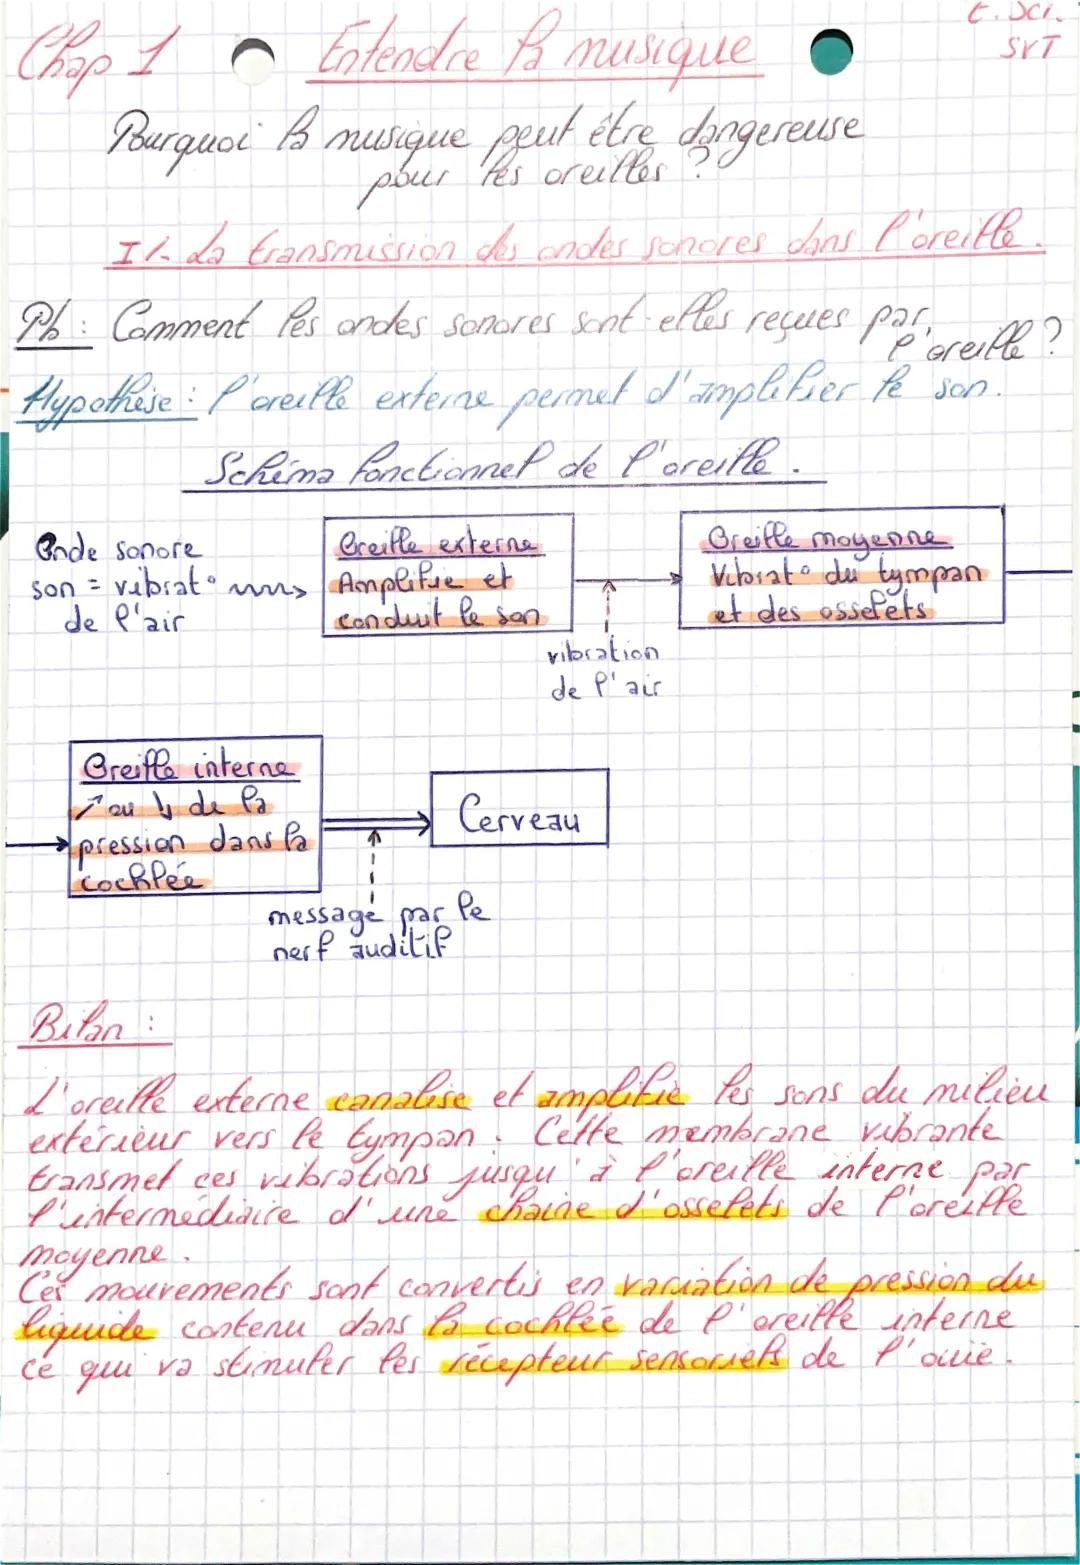 E. Sci.
SVT
Chap 1 Entendre la musique
Pourquoi la musique peut être dangereuse
pour les oreilles ?
I/- La transmission des ondes sonores dans l'oreille.
Pb : Comment les ondes sonores sont-elles reçues par
l'oreille ?
Hypothèse : l'oreille externe permet d'amplifier le son.
Schéma fonctionnel de l'oreille.
Onde sonore
son = vibrat°
de l'air
Oreille externe
Amplifie et
conduit le son
vibration
de l'air
Oreille moyenne
Vibrat° du tympan
et des osselets
Oreille interne
↗ ou ↘ de la
pression dans la
cochlée
message par le
nerf auditif
Cerveau
Bilan :
L'oreille externe canalise et amplifie les sons du milieu
extérieur vers le tympan. Cette membrane vibrante
transmet ces vibrations jusqu'à l'oreille interne par
l'intermédiaire d'une chaine d'osselets de l'oreille
moyenne.
Ces mouvements sont convertis en variation de pression du
liquide contenu dans la cochlée de l'oreille interne
ce qui va stimuler les récepteur sensoriels de l'ouïe.